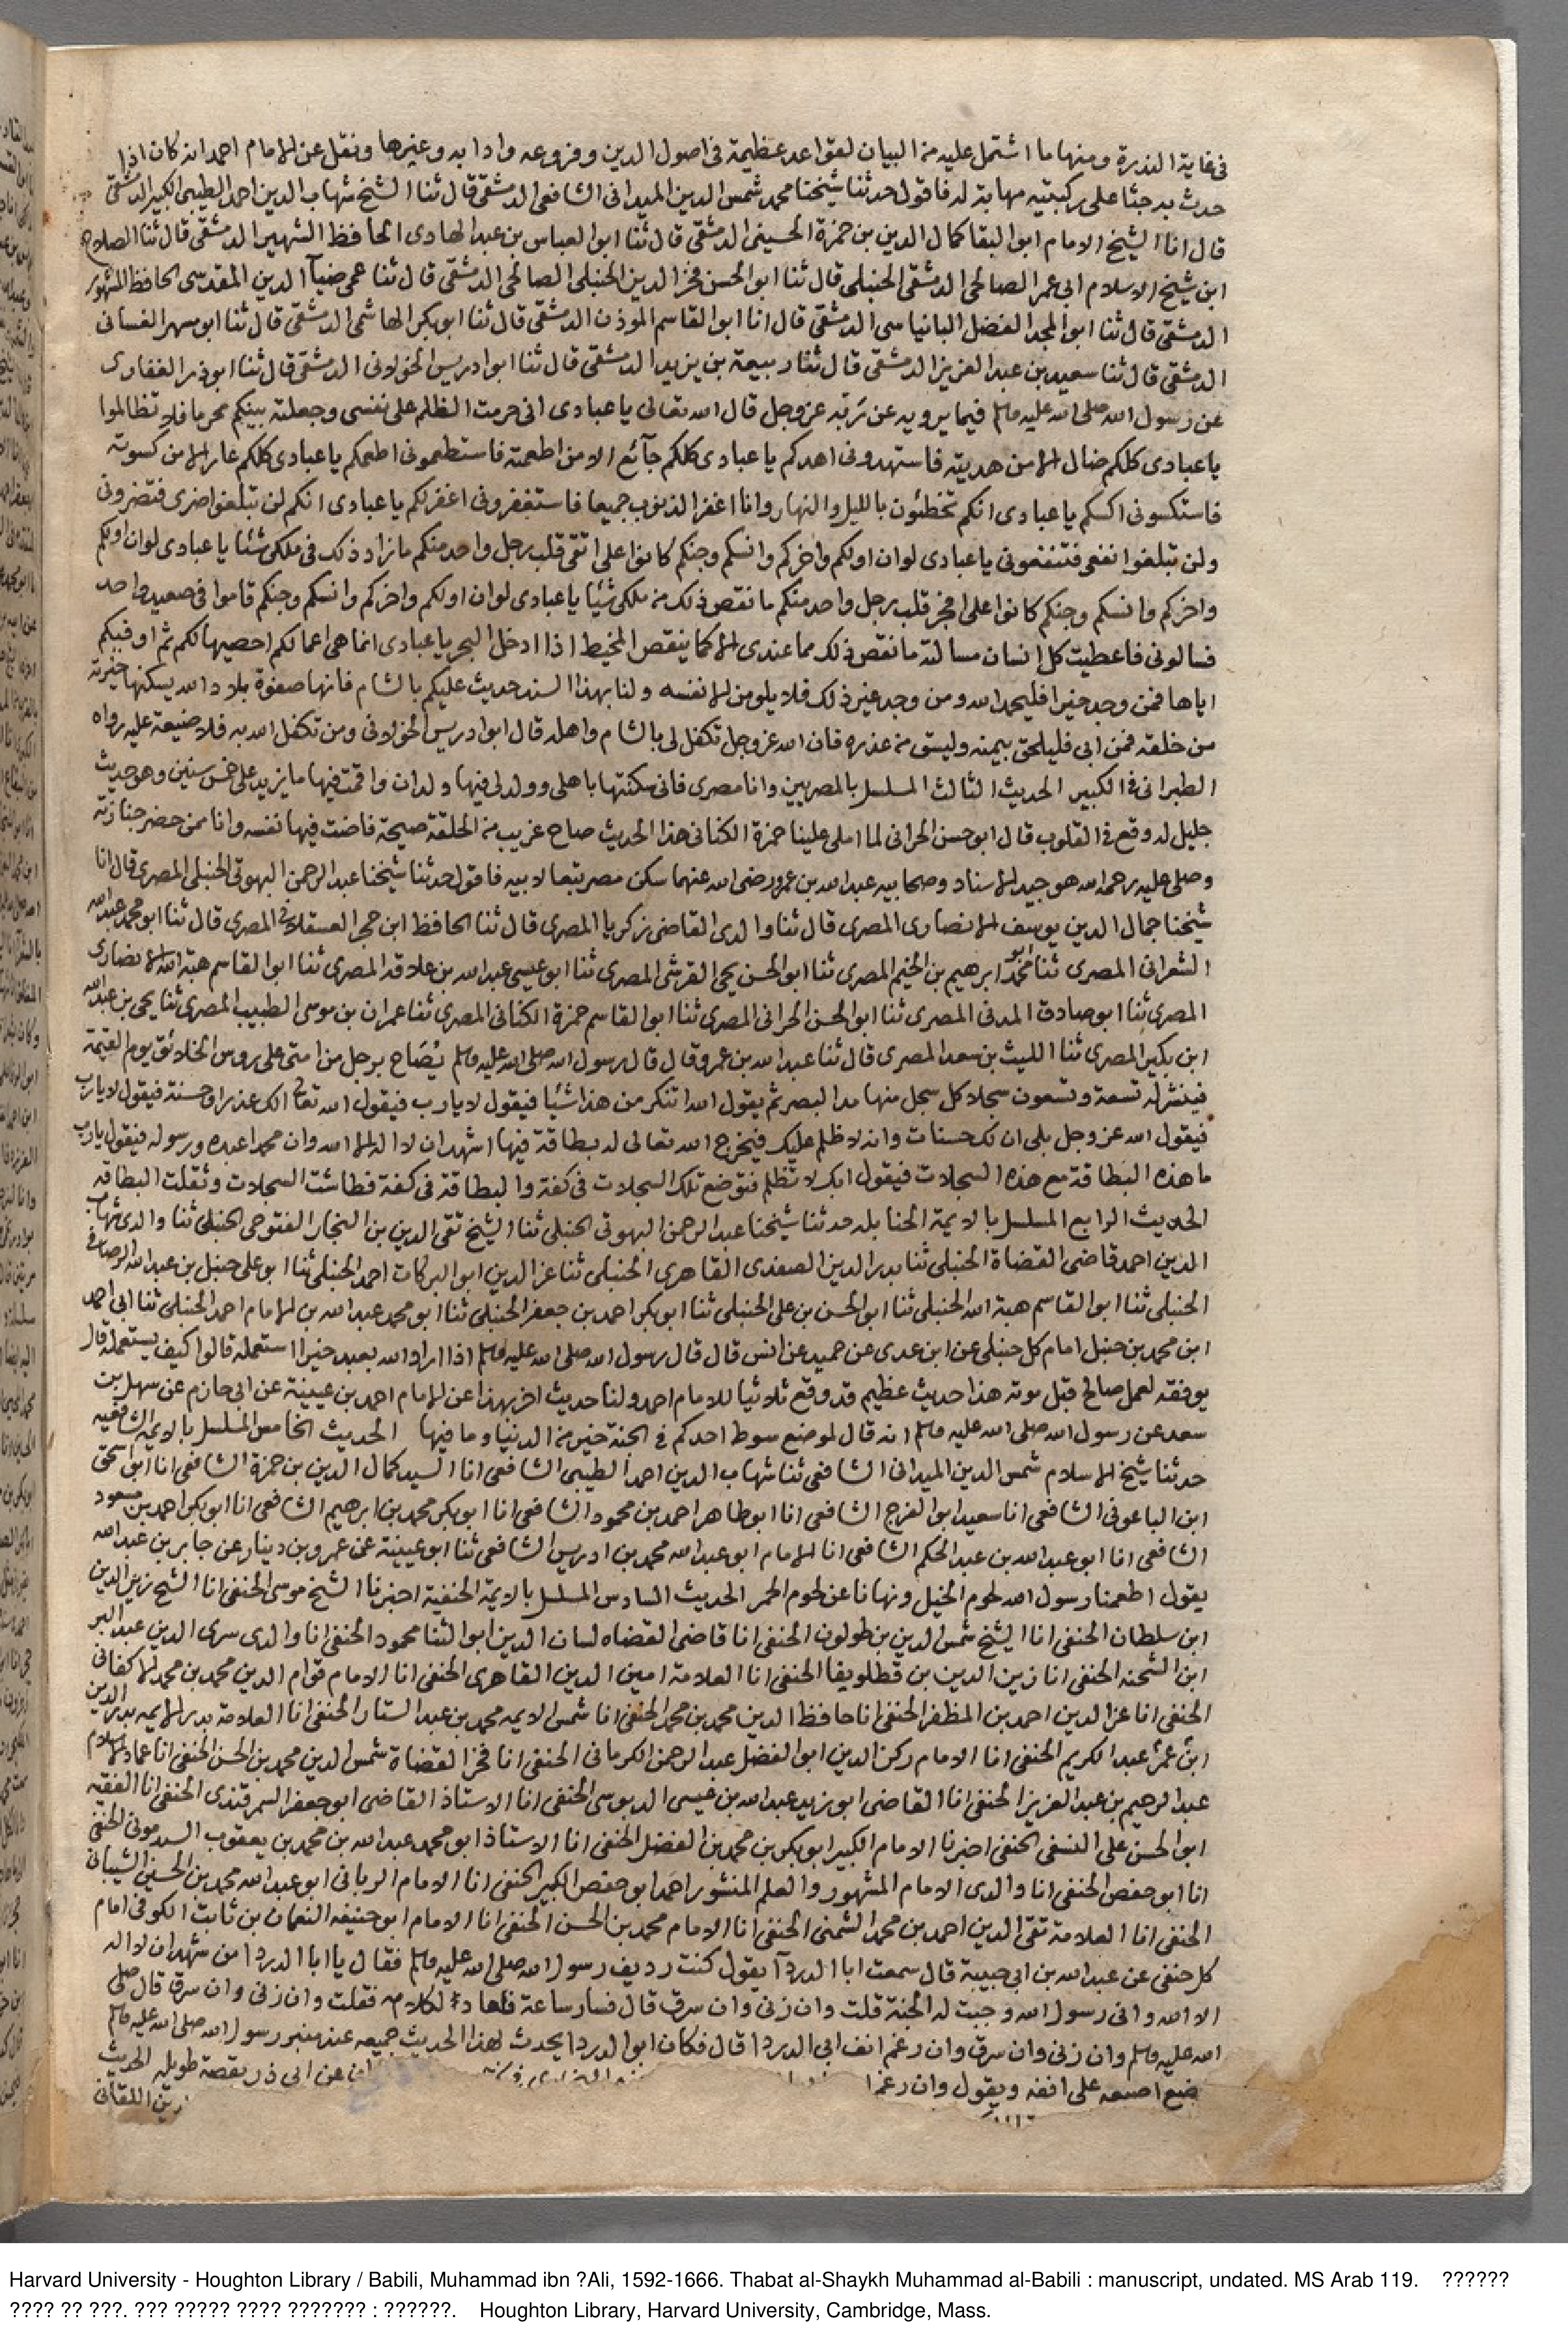 في غاية الندرة ومنها ما اشتمل عليه من البيان لقواعد عظيمة في اصول الدين وفروعه وادابه وغيرها ونقل عن الامام احمد انه كان اذا
حدث به جثا على ركبتيه مهابة له فاقول حدثنا شيخنا محمد شمس الدين الميداني الشافعي الدمشقي قال ثنا الشيخ شهاب الدين احمد الطيبي الكبير الدمشقي
قال انا الشيخ الامام ابو البقا كمال الدين بن حمزة الحسيني الدمشقي قال ثنا ابو العباس بن عبد الهادي الحافظ الشهير الدمشقي قال ثنا الصلاح
ابن شيخ الاسلام ابي عمر الصالحي الدمشقي الحنبلي قال ثنا ابو الحسن فخر الدين الحنبلي الصالحي الدمشقي قال ثنا عمي ضيآ الدين المقدسي الحافظ المشهور
الدمشقي قال ثنا ابو المجد الفضل البانياسي الدمشقي قال انا ابو القاسم الموذن الدمشقي قال ثنا ابو بكر الهاشمي الدمشقي قال ثنا ابو مسهر الغساني
الدمشقي قال ثنا سعيد بن عبد العزيز الدمشقي قال ثنا ربيعة بن يزيد الدمشقي قال ثنا ابو ادريس الخولاني الدمشقي قال ثنا ابو ذر الغفاري
عن رسول الله صلى الله عليه وسلم فيما يرويه عن ربه عز وجل قال الله تعالى يا عبادي اني حرمت الظلم على نفسي وجعلته بينكم محرما فلا تظالموا
يا عبادي كلكم ضال الا من هديته فاستهدوني اهدكم يا عبادي كلكم جآئع الا من اطعمته فاستطعموني اطعمكم يا عبادي كلكم عار الا من كسوته
فاستكسوني اكسكم يا عبادي انكم تخطئون بالليل والنهار وانا اغفر الذنوب جميعا فاستغفروني اغفر لكم يا عبادي انكم لن تبلغوا ضري فتضروني
ولن تبلغوا نفعي فتنفعوني يا عبادي لو ان اولكم واخركم وانسكم وجنكم كانوا على اتقى قلب رجل واحد منكم ما زاد ذلك في ملكي شئا يا عبادي لو ان اولكم
واخركم وانسكم وجنكم كانوا على افجر قلب رجل واحد منكم ما نقص ذلك من ملكي شيئا يا عبادي لو ان اولكم واخركم وانسكم وجنكم قاموا في صعيد واحد
فسالوني فاعطيت كل انسان مسالته ما نقص ذلك مما عندي الا كما ينقص المخيط اذا ادخل البحر يا عبادي انما هي اعمالكم احصيها لكم ثم اوفيكم
اياها فمن وجد خيرا فليحمد الله ومن وجد غير ذلك فلا يلومن الا نفسه ولنا بهذا السند حديث عليكم بالشام فانها صفوة بلاد الله يسكنها خيرته
من خلقه فمن ابى فليلحق بيمنه وليسق من غدره فان الله عز وجل تكفل لي بالشام واهله قال ابو ادريس الخولاني ومن تكفل الله به فلا ضيعة عليه رواه
الطبراني في الكبير الحديث الثالث المسلسل بالمصريين وانا مصري فاني سكنتها باهلي وولد لي فيها ولدان واقمت فيها ما يزيد على خمس سنين وهو حديث
جليل له وقع في القلوب قال ابو حسن الحراني لما املى علينا حمزة الكناني هذا الحديث صاح غريب من الحلقة صيحة فاضت فيها نفسه وانا ممن حضر جنازته
وصلى عليه رحمه الله هو جيد الاسناد وصحابيه عبد الله بن عمرو رضي الله عنهما سكن مصر تبعا لابيه فاقول حدثنا شيخنا عبد الرحمن البهوتي الحنبلي المصري قال انا
شيخنا جمال الدين يوسف الانصاري المصري قال ثنا والدي القاضي زكريا المصري قال ثنا الحافظ ابن حجر العسقلاني المصري قال ثنا ابو محمد عبد الله
الشعراني المصري ثنا ابو محمد ابرهيم بن الخيم المصري ثنا ابو الحسن يحيى القرشي المصري ثنا ابو عيسى عبد الله بن علاقه المصري ثنا ابو القاسم هبة الله الانصاري
المصري ثنا ابو صادق المدني المصري ثنا ابو الحسن الحراني المصري ثنا ابو القاسم حمزة الكناني المصري ثنا عمران بن موسى الطبيب المصري ثنا يحيى بن عبد الله
ابن بكير المصري ثنا الليث بن سعد المصري قال ثنا عبد الله بن عمرو قال قال رسول الله صلى الله عليه وسلم يُصَاح برجل من امتي على روس الخلائق يوم القيمة
فينشر له تسعة وتسعون سجلا كل سجل منها مد البصر ثم يقول الله اتنكر من هذا شئيا فيقول لا يارب فيقول الله تعالى الك عذر او حسنة فيقول لا يارب
فيقول الله عز وجل بلى ان لك حسنات وانه لا ظلم عليك فيخرج الله تعالى له بطاقة فيها اشهد ان لا اله الا الله وان محمدا عبده ورسوله فيقول يارب
ما هذه البطاقة مع هذه السجلات فيقول انك لا تظلم فتوضع تلك السجلات في كفة والبطاقة في كفة فطاشت السجلات وثقلت البطاقه
الحديث الرابع المسلسل بالايمة الحنابله حدثنا شيخنا عبد الرحمن البهوتي الحنبلي ثنا الشيخ تقي الدين بن النجار الفتوحي الحنبلي ثنا والدي شهاب
الدين احمد قاضي القضاة الحنبلي ثنا بدر الدين الصفدي القاهري الحنبلي ثنا عز الدين ابو البركات احمد الحنبلي ثنا ابو علي حنبل بن عبد الله الرصافي
الحنبلي ثنا ابو القاسم هبة الله الحنبلي ثنا ابو الحسن بن علي الحنبلي ثنا ابو بكر احمد بن جعفر الحنبلي ثنا ابو محمد عبد الله بن الامام احمد الحنبلي ثنا ابي احمد
ابن محمد بن حنبل امام كل حنبلي عن ابن عدي عن حميد عن انس قال قال رسول الله صلى الله عليه وسلم اذا اراد الله بعبد خيرا استعمله قالوا كيف يستعمله قال
يوفقه لعمل صالح قبل موته هذا حديث عظيم قد وقع ثلاثيا للامام احمد ولنا حديث اخر بهذا عن الامام احمد بن عيينة عن ابي حازم عن سهل بن
سعد عن رسول الله صلى الله عليه وسلم انه قال لموضع سوط احدكم في الجنة خير من الدنيا وما فيها الحديث الخامس المسلسل بالايمة الشافعيه
حدثنا شيخ الاسلام شمس الدين الميداني الشافعي ثنا شهاب الدين احمد الطيبي الشافعي انا السيد كمال الدين بن حمزة الشافعي انا ابو اسحق
ابن الباعوني الشافعي انا سعيد ابو الفرج الشافعي انا ابو طاهر احمد بن محمود الشافعي انا ابو بكر محمد بن ابرهيم الشافعي انا ابو بكر احمد بن مسعود
الشافعي انا ابو عبد الله بن عبد الحكم الشافعي انا الامام ابو عبد الله محمد بن ادريس الشافعي ثنا ابو عيينة عن عمرو بن دينار عن جابر بن عبد الله
يقول اطعمنا رسول الله لحوم الخيل ونهانا عن لحوم الحمر الحديث السادس المسلسل بالايمة الحنفية اخبرنا الشيخ موسى الحنفي انا الشيخ زين الدين
ابن سلطان الحنفي انا الشيخ شمس الدين بن طولون الحنفي انا قاضي القضاه لسان الدين ابو الثنا محمود الحنفي انا والدي سري الدين عبد البر
ابن الشحنه الحنفي انا زين الدين بن قطلوبغا الحنفي انا العلامة امين الدين القاهري الحنفي انا الامام قوام الدين محمد بن محمد الاكفاني
الحنفي انا عز الدين احمد بن المظفر الحنفي انا حافظ الدين محمد بن محمد الحنفي انا شمس الايمه محمد بن عبد الستار الحنفي انا العلامة بدر الايمه بدر الدين
ابن عمر عبد الكريم الحنفي انا الامام ركن الدين ابو الفضل عبد الرحمن الكرماني الحنفي انا فخر القضاة شمس الدين محمد بن الحسن الحنفي انا عماد الاسلام
عبد الرحيم بن عبد العزيز الحنفي انا القاضي ابو زيد عبد الله بن عيسى الدبوسي الحنفي انا الاستاذ القاضي ابو جعفر السمرقندي الحنفي انا الفقيه
ابو الحسن علي النسفي الحنفي اخبرنا الامام الكبير ابو بكر بن محمد بن الفضل الحنفي انا الاستاذ ابو محمد عبد الله بن محمد بن يعقوب السدموني الحنفي
انا ابو حفص الحنفي انا والدي الامام المشهور والعلم المنشور احمد ابو حفص الكبير الحنفي انا الامام الرباني ابو عبد الله محمد بن الحسين الشيباني
الحنفي انا العلامة تقي الدين احمد بن محمد الشمني الحنفي انا الامام محمد بن الحسن الحنفي انا الامام ابو حنيفه النعمان بن ثابت الكوفي امام
كل حنفي عن عبد الله بن ابي حبيبة قال سمعت ابا الدردآ يقول كنت رديف رسول الله صلى الله عليه وسلم فقال يا ابا الدردا من شهد ان لا اله
الا الله واني رسول الله وجبت له الجنة قلت وان زنى وان سرق قال فسار ساعة فعاد لكلامه فقلت وان زنى وان سرق قال صلى
الله عليه وسلم وان زنى وان سرق وان رغم انف ابي الدردا قال فكان ابو الدردا يحدث لهذا الحديث جميعه عند منبر رسول الله صلى الله عليه وسلم
ضع اصبعه على انفه ويقول وان رغم ا عن ابي ذر بقصة طويله الحديث
اللقاني
Harvard University - Houghton Library / Babili, Muhammad ibn ?Ali, 1592-1666. Thabat al-Shaykh Muhammad al-Babili : manuscript, undated. MS Arab 119. ??????
???? ?? ???. ??? ????? ???? ??????? : ??????. Houghton Library, Harvard University, Cambridge, Mass.